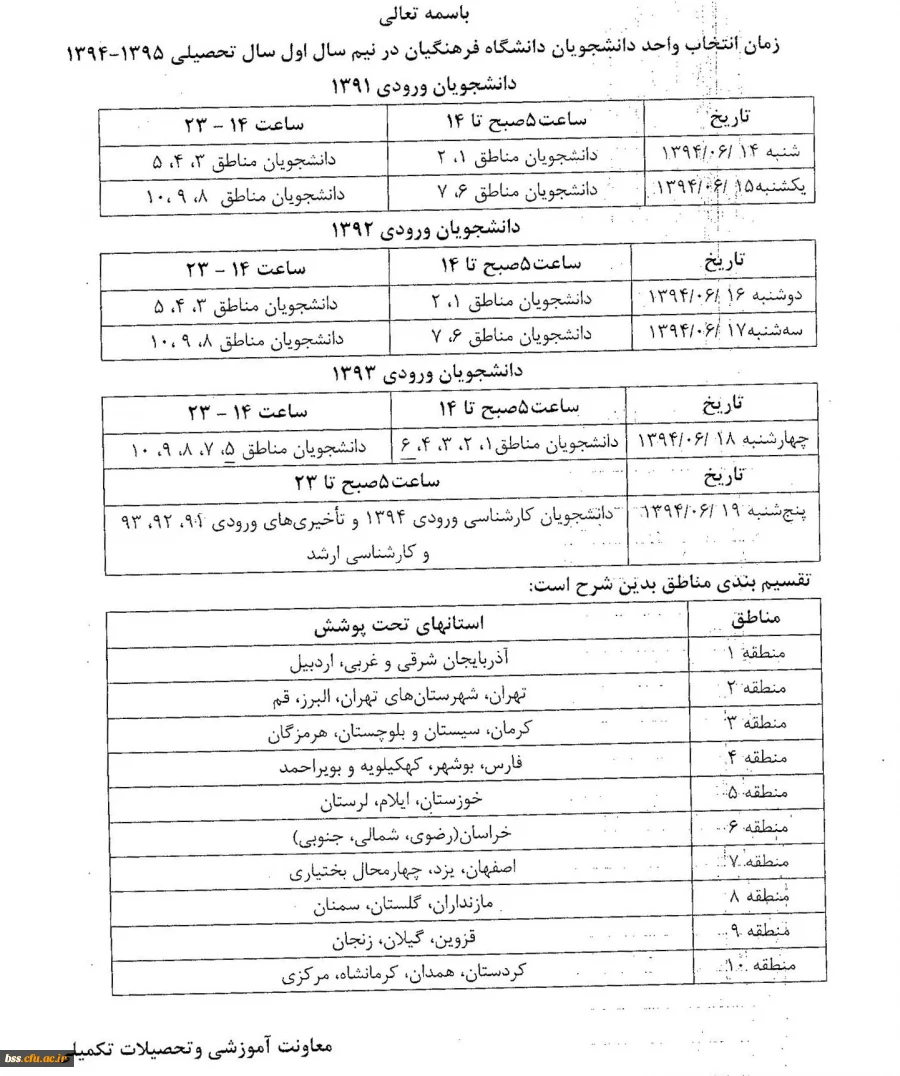 باسمه تعالی
زمان انتخاب واحد دانشجویان دانشگاه فرهنگیان در نیم سال اول سال تحصیلی ۱۳۹۵-۱۳۹۴
دانشجویان ورودی ۱۳۹۱
تاریخ ساعت۵صبح تا ۱۴ ساعت ۱۴ - ۲۳
شنبه ۱۴ /۱۳۹۴/۰۶ دانشجویان مناطق ۱، ۲ دانشجویان مناطق ۳، ۴، ۵
یکشنبه۱۵ /۱۳۹۴/۰۶ دانشجویان مناطق ۶، ۷ دانشجویان مناطق ۸، ۹، ۱۰
دانشجویان ورودی ۱۳۹۲
تاریخ ساعت۵صبح تا ۱۴ ساعت ۱۴ - ۲۳
دوشنبه ۱۶ /۱۳۹۴/۰۶ دانشجویان مناطق ۱، ۲ دانشجویان مناطق ۳، ۴، ۵
سه‌شنبه۱۷ /۱۳۹۴/۰۶ دانشجویان مناطق ۶، ۷ دانشجویان مناطق ۸، ۹، ۱۰
دانشجویان ورودی ۱۳۹۳
تاریخ ساعت۵صبح تا ۱۴ ساعت ۱۴ - ۲۳
چهارشنبه ۱۸ /۱۳۹۴/۰۶ دانشجویان مناطق۱، ۲، ۳، ۴، ۶ دانشجویان مناطق ۵، ۷، ۸، ۹، ۱۰
تاریخ ساعت۵صبح تا ۲۳
پنج‌شنبه ۱۹ /۱۳۹۴/۰۶ دانشجویان کارشناسی ورودی ۱۳۹۴ و تأخیری‌های ورودی ۹۱، ۹۲، ۹۳
و کارشناسی ارشد
تقسیم بندی مناطق بدین شرح است:
مناطق استانهای تحت پوشش
منطقه ۱ آذربایجان شرقی و غربی، اردبیل
منطقه ۲ تهران، شهرستان‌های تهران، البرز، قم
منطقه ۳ کرمان، سیستان و بلوچستان، هرمزگان
منطقه ۴ فارس، بوشهر، کهکیلویه و بویراحمد
منطقه ۵ خوزستان، ایلام، لرستان
منطقه ۶ خراسان(رضوی، شمالی، جنوبی)
منطقه ۷ اصفهان، یزد، چهارمحال بختیاری
منطقه ۸ مازنداران، گلستان، سمنان
منطقه ۹ قزوین، گیلان، زنجان
منطقه ۱۰ کردستان، همدان، کرمانشاه، مرکزی
معاونت آموزشی وتحصیلات تکمیلی
bss.cfu.ac.ir